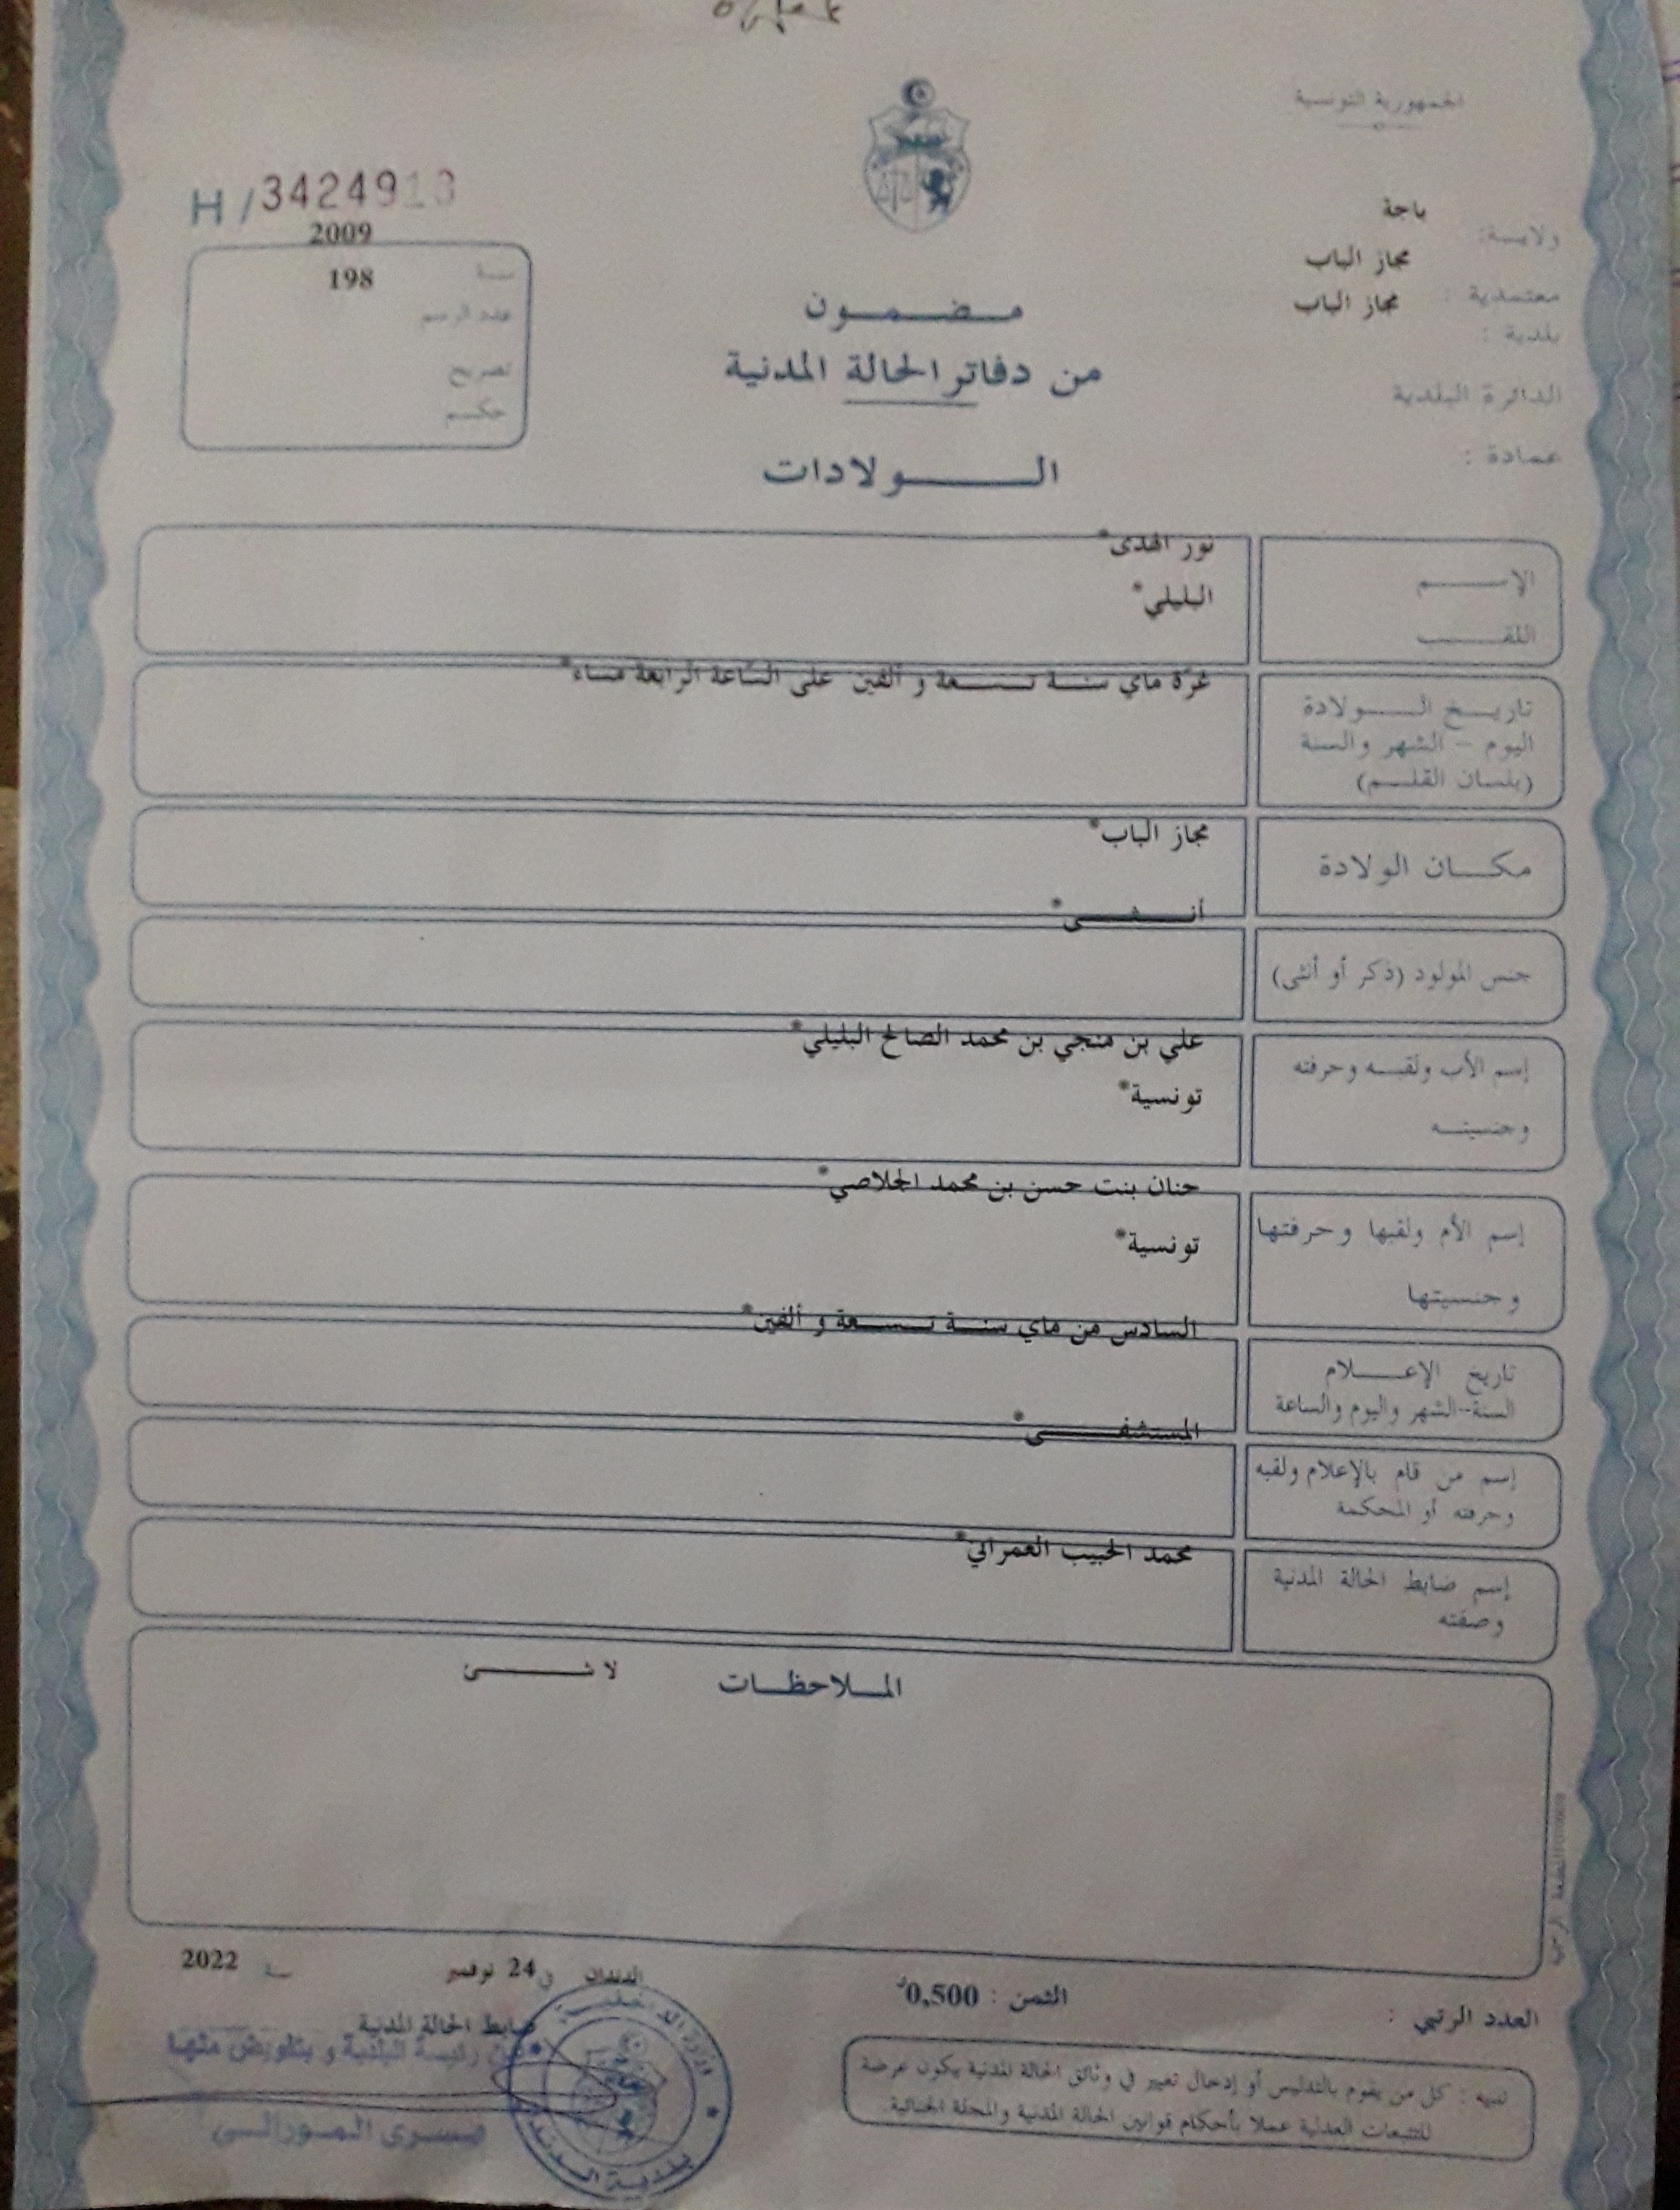 الجمهورية التونسية
H/3424913
2009
سنة
198
عدد الرسم
تصريح
حكم
باجة
ولاية:
مجاز الباب
معتمدية :
مجاز الباب
بلدية :
الدائرة البلدية
عمادة :
مضمون
من دفاتر الحالة المدنية
الولادات
نور الهدى*
الإسم
البليلي*
اللقب
غرّة ماي سنة تسعة و ألفين على السّاعة الرابعة مساء*
تاريخ الولادة
اليوم – الشهر والسنة
(بلسان القلم)
مجاز الباب*
مكان الولادة
أنثى*
جنس المولود (ذكر أو أنثى)
علي بن منجي بن محمد الصالح البليلي*
إسم الأب ولقبه وحرفته
تونسية*
وجنسيته
حنان بنت حسن بن محمد الجلاصي*
إسم الأم ولقبها وحرفتها
تونسية*
وجنسيتها
السادس من ماي سنة تسعة و ألفين*
تاريخ الإعلام
السنة-الشهر واليوم والساعة
المستشفى*
إسم من قام بالإعلام ولقبه
وحرفته أو المحكمة
محمد الحبيب العمراني*
إسم ضابط الحالة المدنية
وصفته
الملاحظات
لا شئ
الدندان في 24 نوفمبر سنة 2022
ضابط الحالة المدنية
عن رئيسة البلدية و بتفويض منها
يسرى
الثمن : 0,500د
العدد الرتبي :
تنبيه : كل من يقوم بالتدليس أو إدخال تغيير في وثائق الحالة المدنية يكون عرضة
للتتبعات العدلية عملا بأحكام قوانين الحالة المدنية والمجلة الجنائية.
وزارة الداخلية
بلدية الدندان